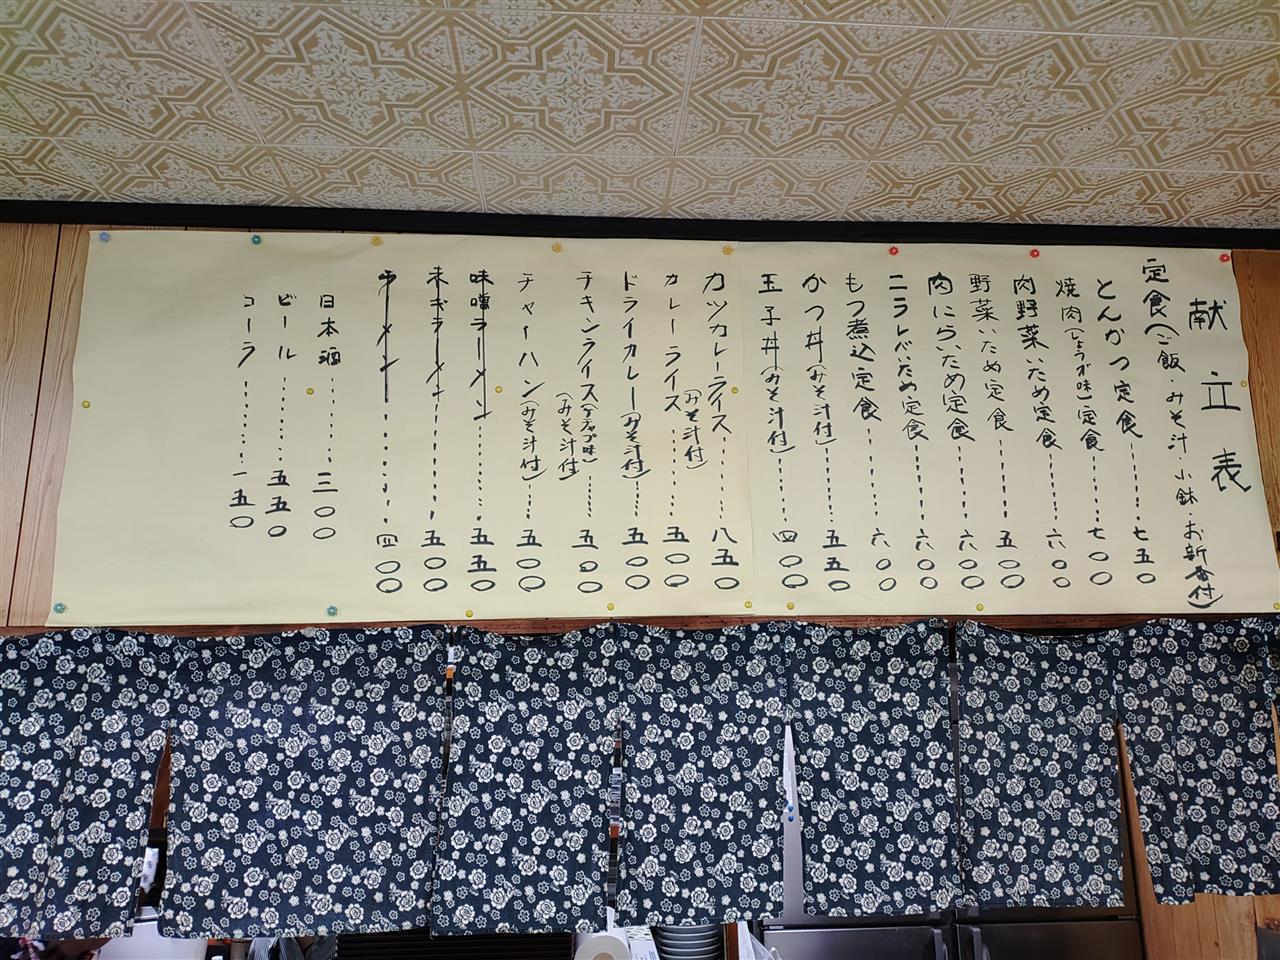 献立表
定食(ご飯・みそ汁・小鉢・お新香付)
とんかつ定食………七五〇
焼肉(しょうが味)定食………七〇〇
肉野菜いため定食………六〇〇
野菜いため定食………五〇〇
肉にらいため定食………六〇〇
ニラレバいため定食………六〇〇
もつ煮込定食………六〇〇
かつ丼(みそ汁付)………五五〇
玉子丼(みそ汁付)………四〇〇
カツカレーライス(みそ汁付)………八五〇
カレーライス………五〇〇
ドライカレー(みそ汁付)………五〇〇
チキンライス(ケチャップ味)(みそ汁付)………五〇〇
チャーハン(みそ汁付)………五〇〇
味噌ラーメン………五五〇
ネギラーメン………五〇〇
ラーメン………四〇〇
日本酒………三〇〇
ビール………五五〇
コーラ………一五〇